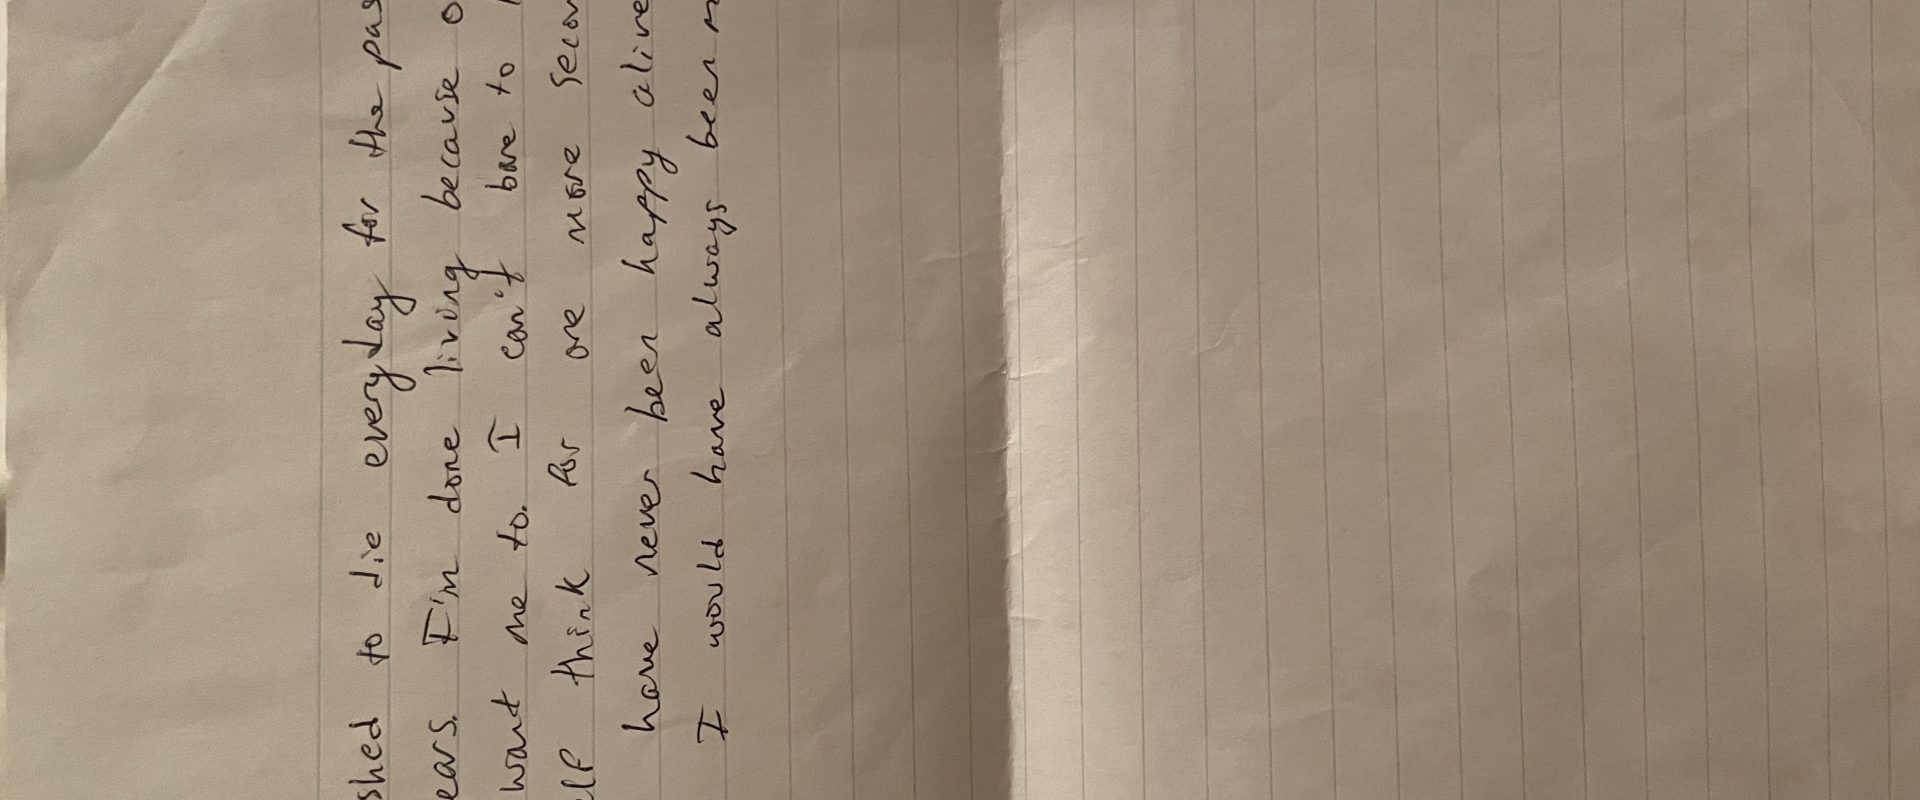 shed to die everyday for the pas
ears. I'm done living because o
want me to. I can't bare to
elf think for one more secon
have never been happy alive
I would have always been m